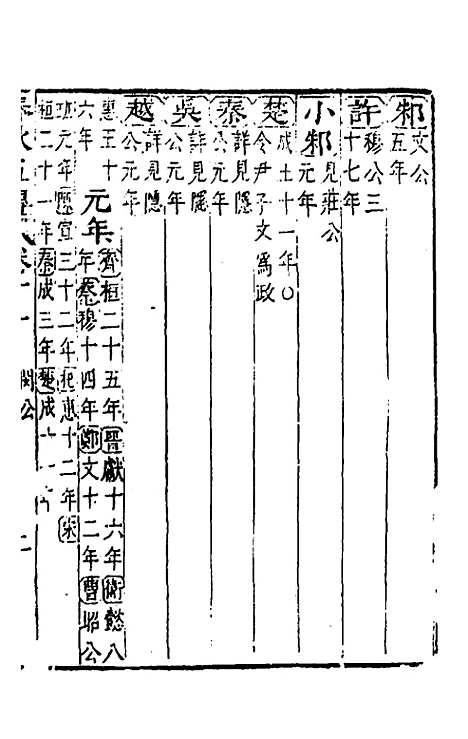 邾文公五年
許穆公三十七年
小邾見莊公元年
楚成王十一年〇令尹子文爲政
秦詳見隱公元年
吳詳見隱公元年
越詳見隱公元年
惠王十六年 元年齊桓二十五年晉獻十六年衛懿八年蔡穆十四年鄭文十二年曹昭公
班元年陳宣三十二年杞惠十二年宋桓二十一年秦成三年楚成十一
閔公 二